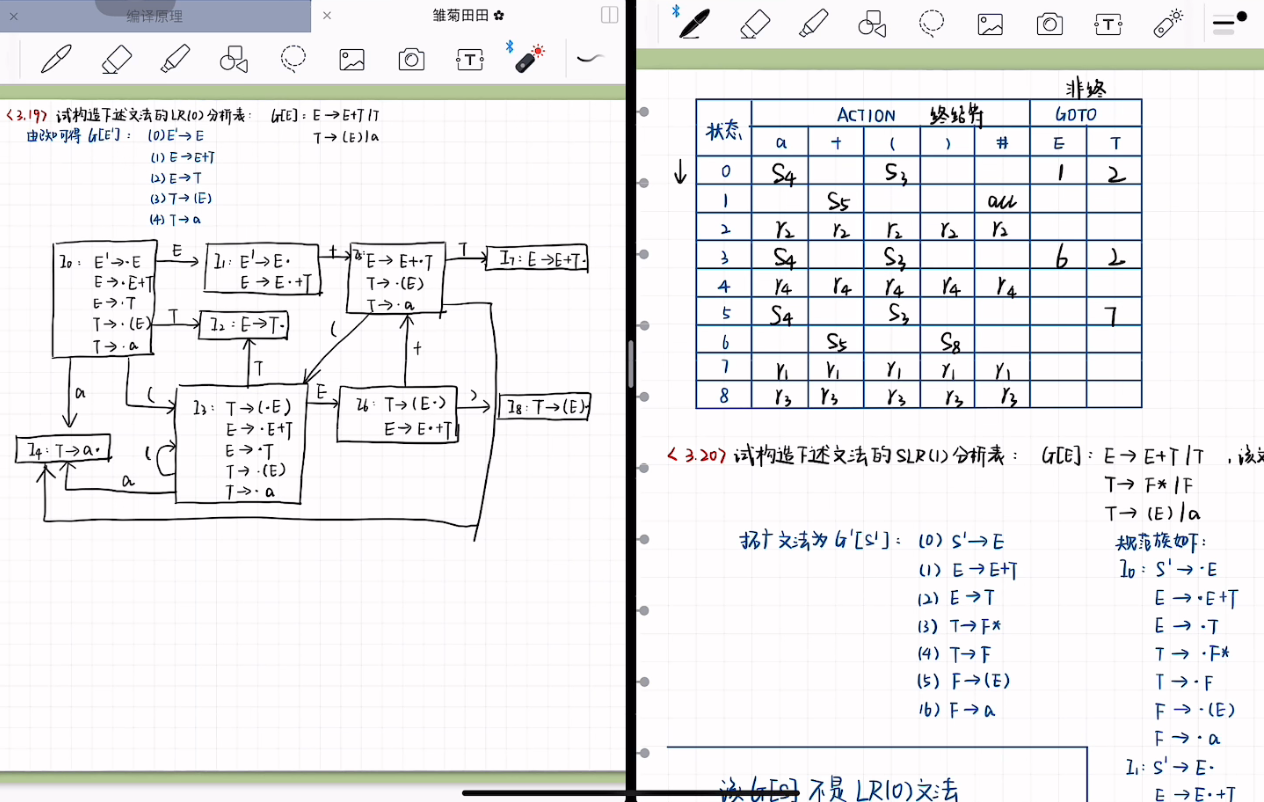 编译原理
雏菊田田 ✿
<3.19> 试构造下述文法的LR(0)分析表: G[E]: E→E+T|T
T→(E)|a
由题知可得 G[E']: (0) E'→E
(1) E→E+T
(2) E→T
(3) T→(E)
(4) T→a
I0: E'→·E
E→·E+T
E→·T
T→·(E)
T→·a
E
I1: E'→E·
E→E·+T
+
I5: E→E+·T
T→·(E)
T→·a
T
I7: E→E+T·
T
I2: E→T·
(
+
T
a
(
I3: T→(·E)
E→·E+T
E→·T
T→·(E)
T→·a
E
I6: T→(E·)
E→E·+T
)
I8: T→(E)·
I4: T→a·
(
a
非终
状态 ACTION 终结符 GOTO
a + ( ) # E T
0 S4 S3 1 2
1 S5 acc
2 r2 r2 r2 r2 r2
3 S4 S3 6 2
4 r4 r4 r4 r4 r4
5 S4 S3 7
6 S5 S8
7 r1 r1 r1 r1 r1
8 r3 r3 r3 r3 r3
<3.20> 试构造下述文法的SLR(1)分析表: G[E]: E→E+T|T ,该文
T→F*|F
T→(E)|a
拓广文法为G'[S']: (0) S'→E
(1) E→E+T
(2) E→T
(3) T→F*
(4) T→F
(5) F→(E)
(6) F→a
规范族如下:
I0: S'→·E
E→·E+T
E→·T
T→·F*
T→·F
F→·(E)
F→·a
I1: S'→E·
E→E·+T
该G[S]不是LR(0)文法